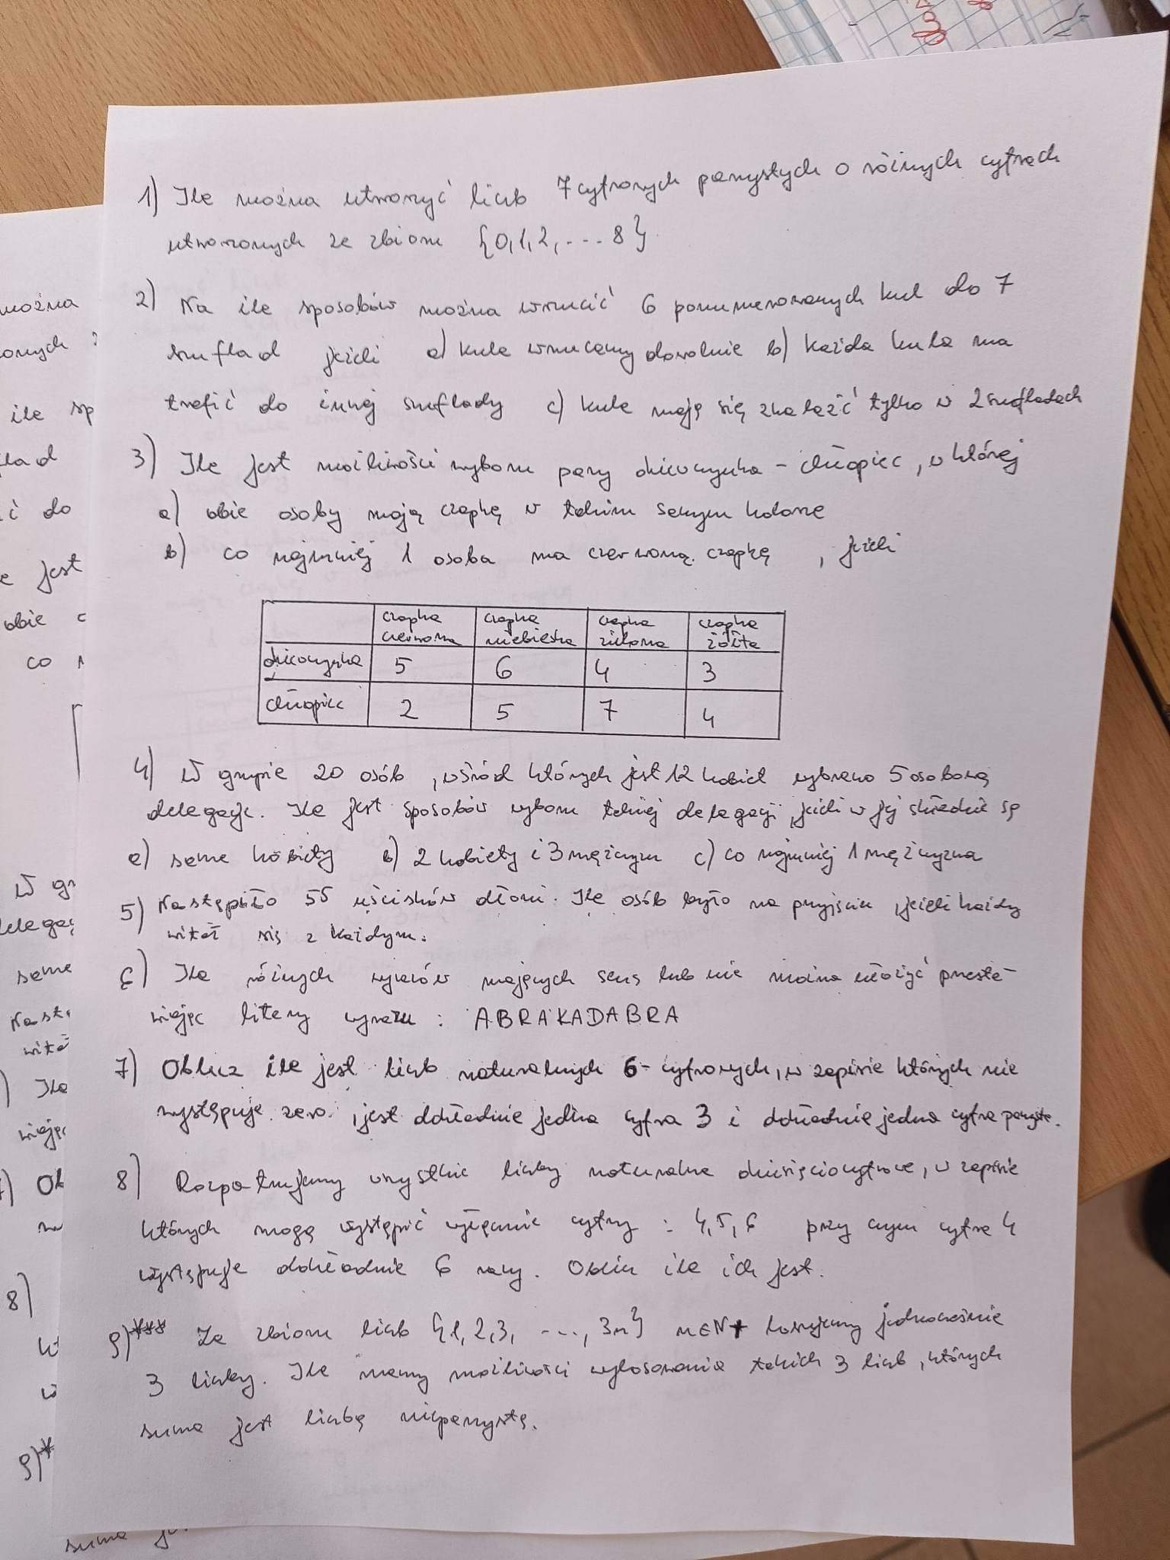 1) Ile można utworzyć liczb 7cyfrowych parzystych o różnych cyfrach
utworzonych ze zbioru {0,1,2,...8}
2) Na ile sposobów można wrzucić 6 ponumerowanych kul do 7
szuflad jeżeli a) kule wrzucamy dowolnie b) każda kula ma
trafić do innej szuflady c) kule mają się znaleźć tylko w 2 szufladach
3) Ile jest możliwości wyboru pary dziewczynka - chłopiec, w której
a) obie osoby mają czapkę w takim samym kolorze
b) co najmniej 1 osoba ma czerwoną czapkę , jeżeli
czapka czapka czapka czapka
czerwona niebieska zielona żółta
dziewczynka 5 6 4 3
chłopiec 2 5 7 4
4) W grupie 20 osób , wśród których jest 12 kobiet wybrano 5 osobową
delegację. Ile jest sposobów wyboru takiej delegacji , jeżeli w jej składzie są
a) same kobiety b) 2 kobiety i 3 mężczyzn c) co najmniej 1 mężczyzna
5) Nastąpiło 55 uścisków dłoni. Ile osób było na przyjęciu , jeżeli każdy
witał się z każdym.
6) Ile różnych wyrazów mających sens lub nie można ułożyć przesta-
wiając litery wyrazu : ABRAKADABRA
7) Oblicz ile jest liczb naturalnych 6-cyfrowych, w zapisie których nie
występuje zero , jest dokładnie jedna cyfra 3 i dokładnie jedna cyfra parzysta.
8) Rozpatrujemy wszystkie liczby naturalne dziesięciocyfrowe, w zapisie
których mogą wystąpić wyłącznie cyfry : 4,5,6 przy czym cyfra 4
występuje dokładnie 6 razy. Oblicz ile ich jest.
9)*** Ze zbioru liczb {1,2,3, ...., 3n} n∈N+ losujemy jednocześnie
3 liczby. Ile mamy możliwości wylosowania takich 3 liczb , których
suma jest liczbą nieparzystą.